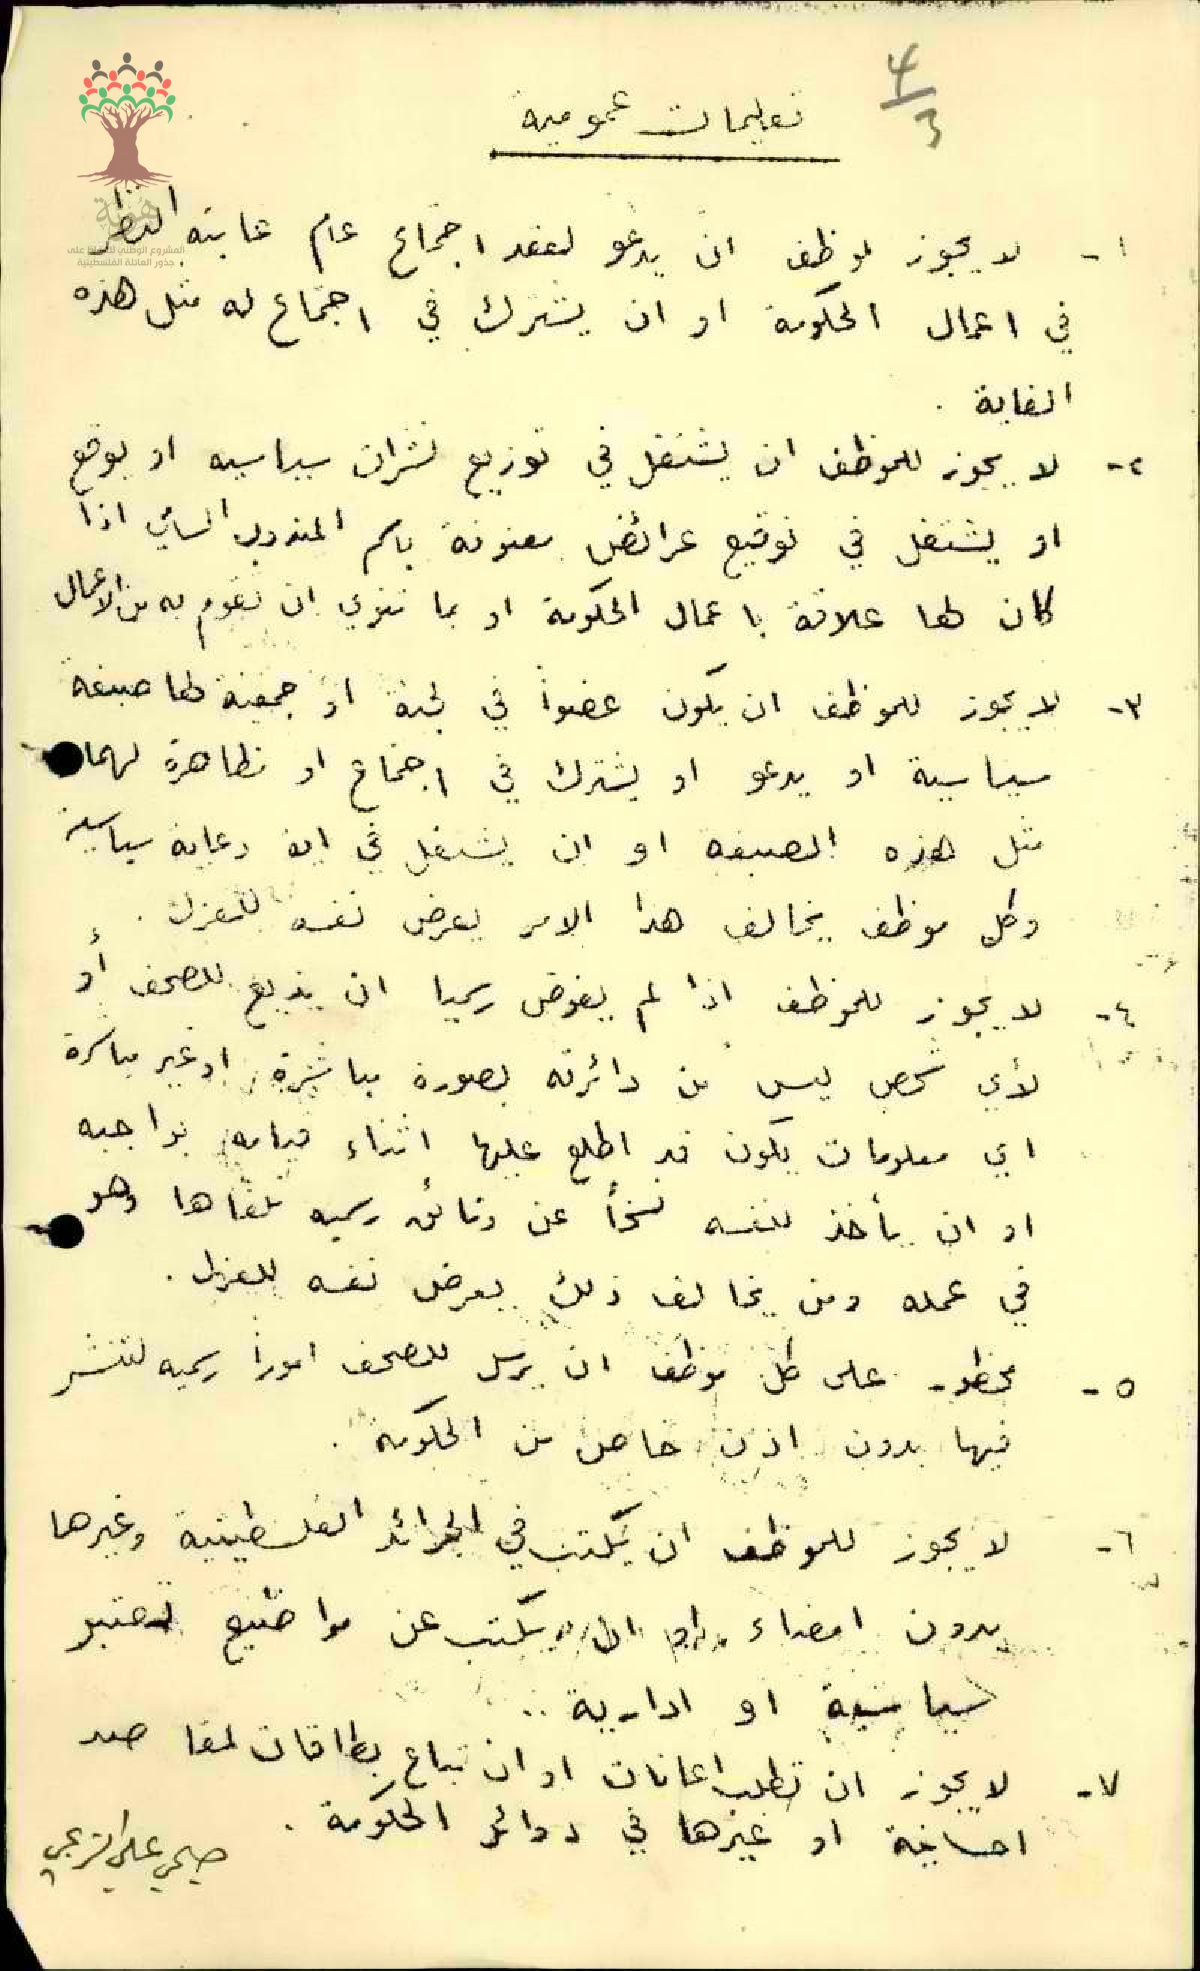 ٤/٣
تعليمات عمومية
هوية
المشروع الوطني للحفاظ على
جذور العائلة الفلسطينية
١- لا يجوز لموظف ان يدعو لعقد اجتماع عام غايته النظر
في اعمال الحكومة او ان يشترك في اجتماع له مثل هذه
الغاية .
٢- لا يجوز للموظف ان يشتغل في توزيع نشرات سياسيه او يوقع
او يشتغل في توقيع عرائض معنونة باسم المندوب السامي اذا
كان لها علاقة باعمال الحكومة او بما تنوي ان تقوم به من الاعمال
٣- لا يجوز للموظف ان يكون عضوا في لجنة او جمعية لها صبغة
سياسية او يدعو او يشترك في اجتماع او تظاهرة لهما
مثل هذه الصبغه او ان يشتغل في اية دعاية سياسية
وكل موظف يخالف هذا الامر يعرض نفسه للعزل .
٤- لا يجوز للموظف اذا لم يفوض رسميا ان يذيع للصحف أو
لأي شخص ليس من دائرته بصورة مباشرة او غير مباشرة
اي معلومات يكون قد اطلع عليها اثناء قيامه بواجبه
او ان يأخذ لنفسه نسخاً عن وثائق رسميه تلقاها وهو
في عمله ومن يخالف ذلك يعرض نفسه للعزل .
٥- محظور على كل موظف ان يرسل للصحف امورا رسميه لتنشر
فيها بدون اذن خاص من الحكومة .
٦- لا يجوز للموظف ان يكتب في الجرائد الفلسطينية وغيرها
بدون امضاء او ان يكتب عن مواضيع تعتبر
سياسية او ادارية ..
٧- لا يجوز ان تطلب اعانات او ان تباع بطاقات لمقاصد
احسانية او غيرها في دوائر الحكومة .
صبحي علي